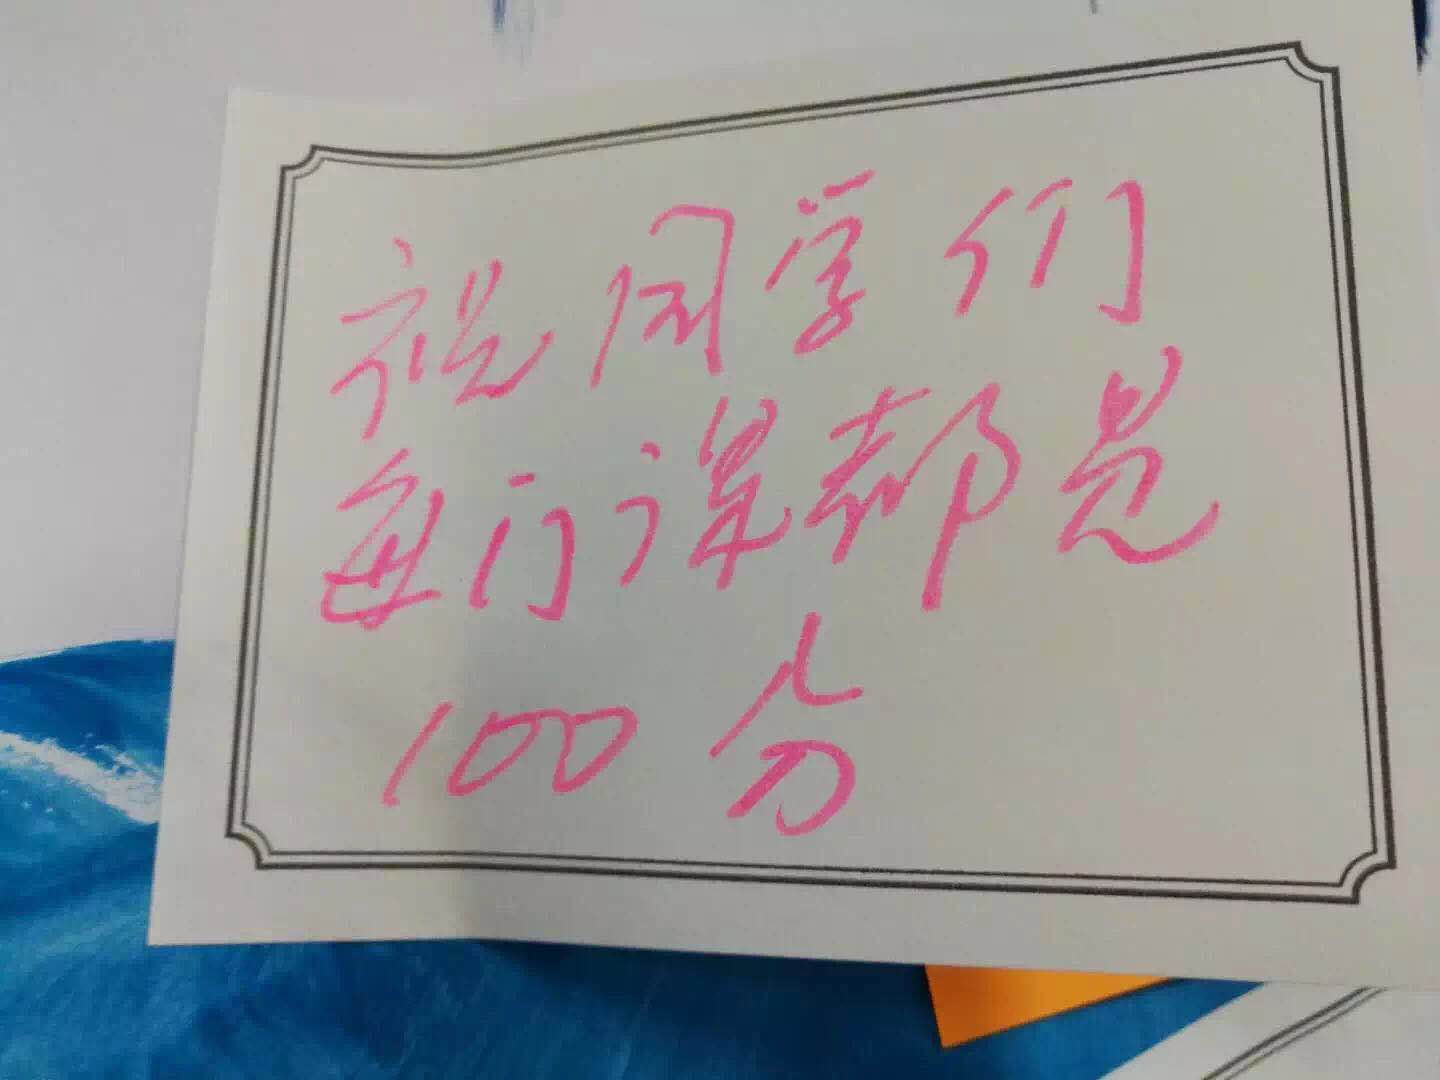 祝同学们
每门课都是
100分